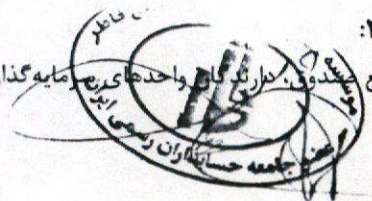 فاطر
ع صندوق، دارندگان واحدهای سرمایه‌گذار
موسسه
عضو جامعه حسابداران رسمی ایران